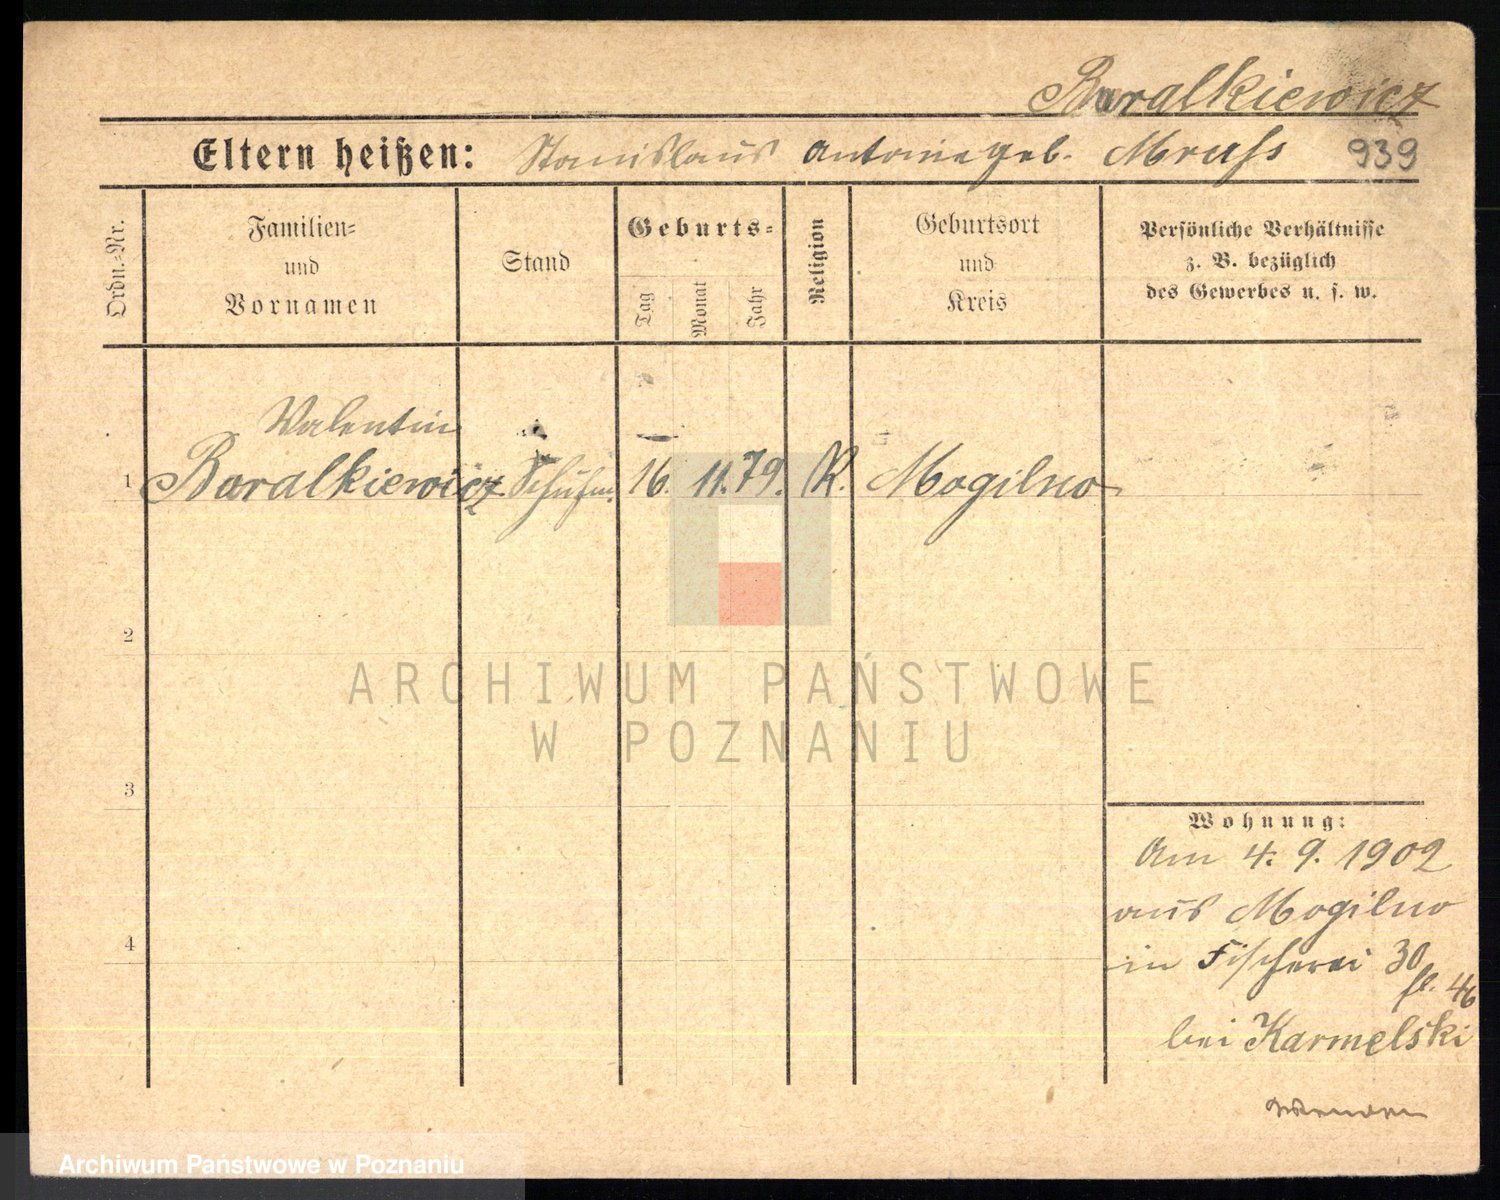 Baralkiewicz
Eltern heißen: Stanislaus Antonie geb. Mruß 939
Ordn.-Nr.
Familien-
und
Vornamen
Stand
Geburts-
Tag
Monat
Jahr
Religion
Geburtsort
und
Kreis
Persönliche Verhältnisse
z. B. bezüglich
des Gewerbes u. s. w.
Valentin
1 Baralkiewicz Schuhm. 16. 11. 79. K. Mogilno
2
3
4
Wohnung:
Am 4. 9. 1902
aus Mogilno
in Fischerei 30
46
bei Karmelski
wenden
ARCHIWUM PAŃSTWOWE
W POZNANIU
Archiwum Państwowe w Poznaniu